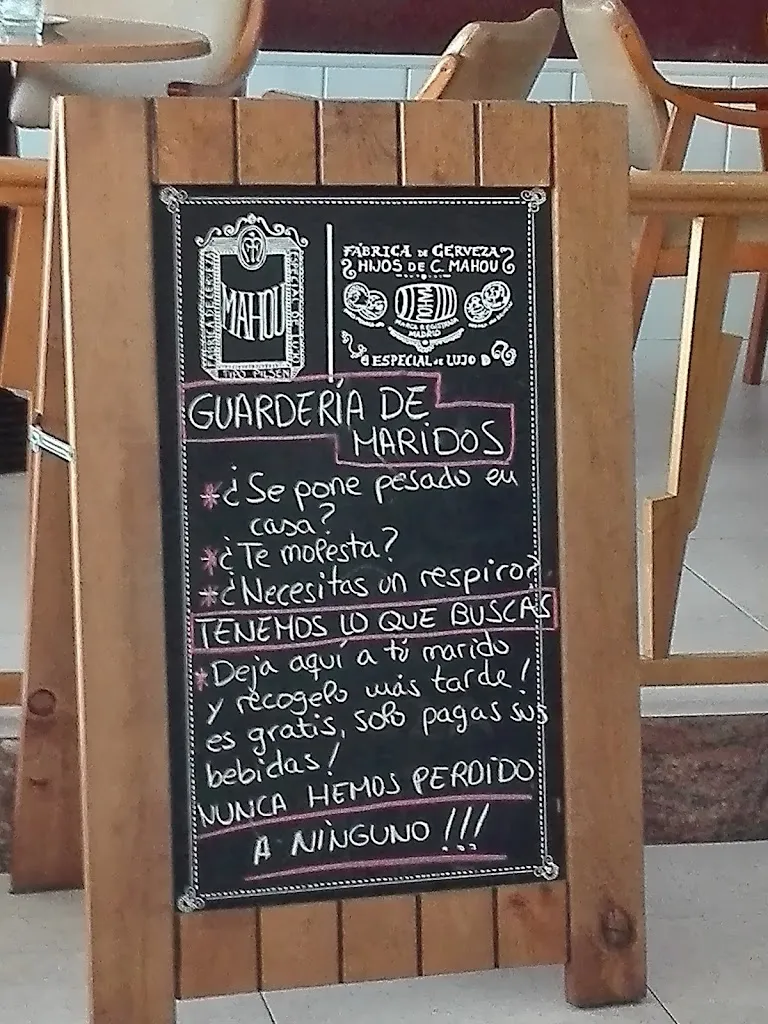 FÁBRICA DE CERVEZA
MAHOU
ESPECIAL DE LUJO
TIPO PILSEN
FÁBRICA DE CERVEZA
HIJOS DE C. MAHOU
MAHOU
MARCA REGISTRADA
MADRID
ESPECIAL DE LUJO
GUARDERÍA DE
MARIDOS
*¿Se pone pesado en
casa?
*¿Te molesta?
*¿Necesitas un respiro?
TENEMOS LO QUE BUSCAS
*Deja aquí a tú marido
y recogelo más tarde!
es gratis, solo pagas sus
bebidas!
NUNCA HEMOS PERDIDO
A NINGUNO!!!